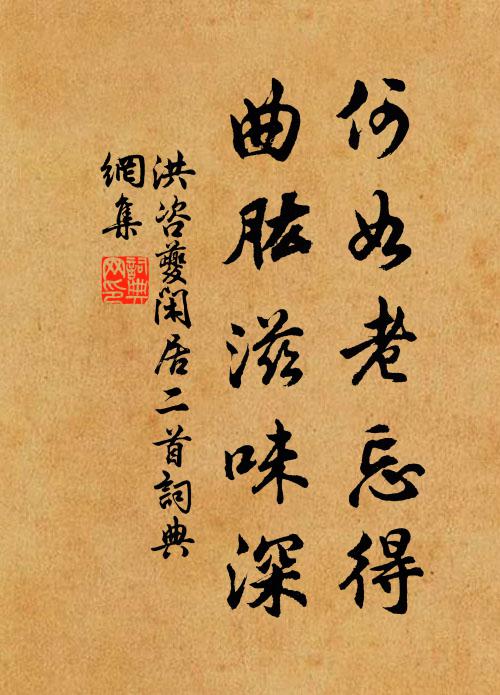 何如老忘得
曲肱滋味深
洪咨夔閑居二首詞典
網集
詞典網印